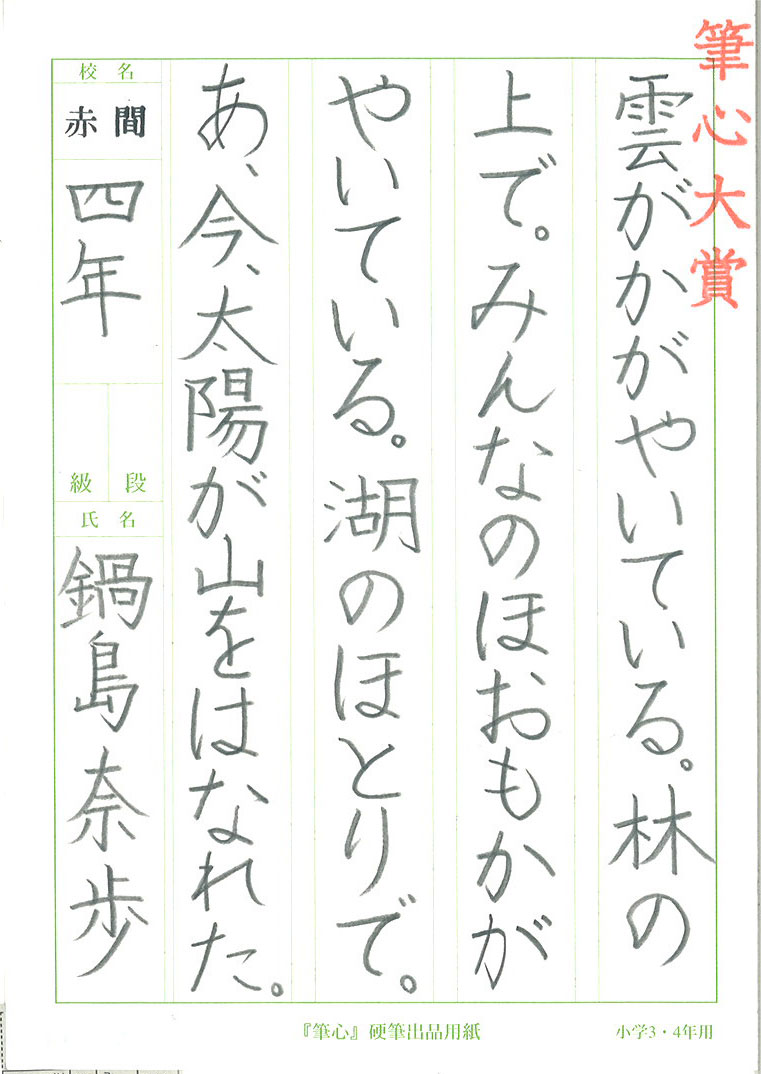 筆心大賞
雲がかがやいている。林の
上で。みんなのほおもかが
やいている。湖のほとりで。
あ、今、太陽が山をはなれた。
校名
赤間
四年
級 段
氏名
鍋島奈歩
『筆心』硬筆出品用紙
小学3・4年用